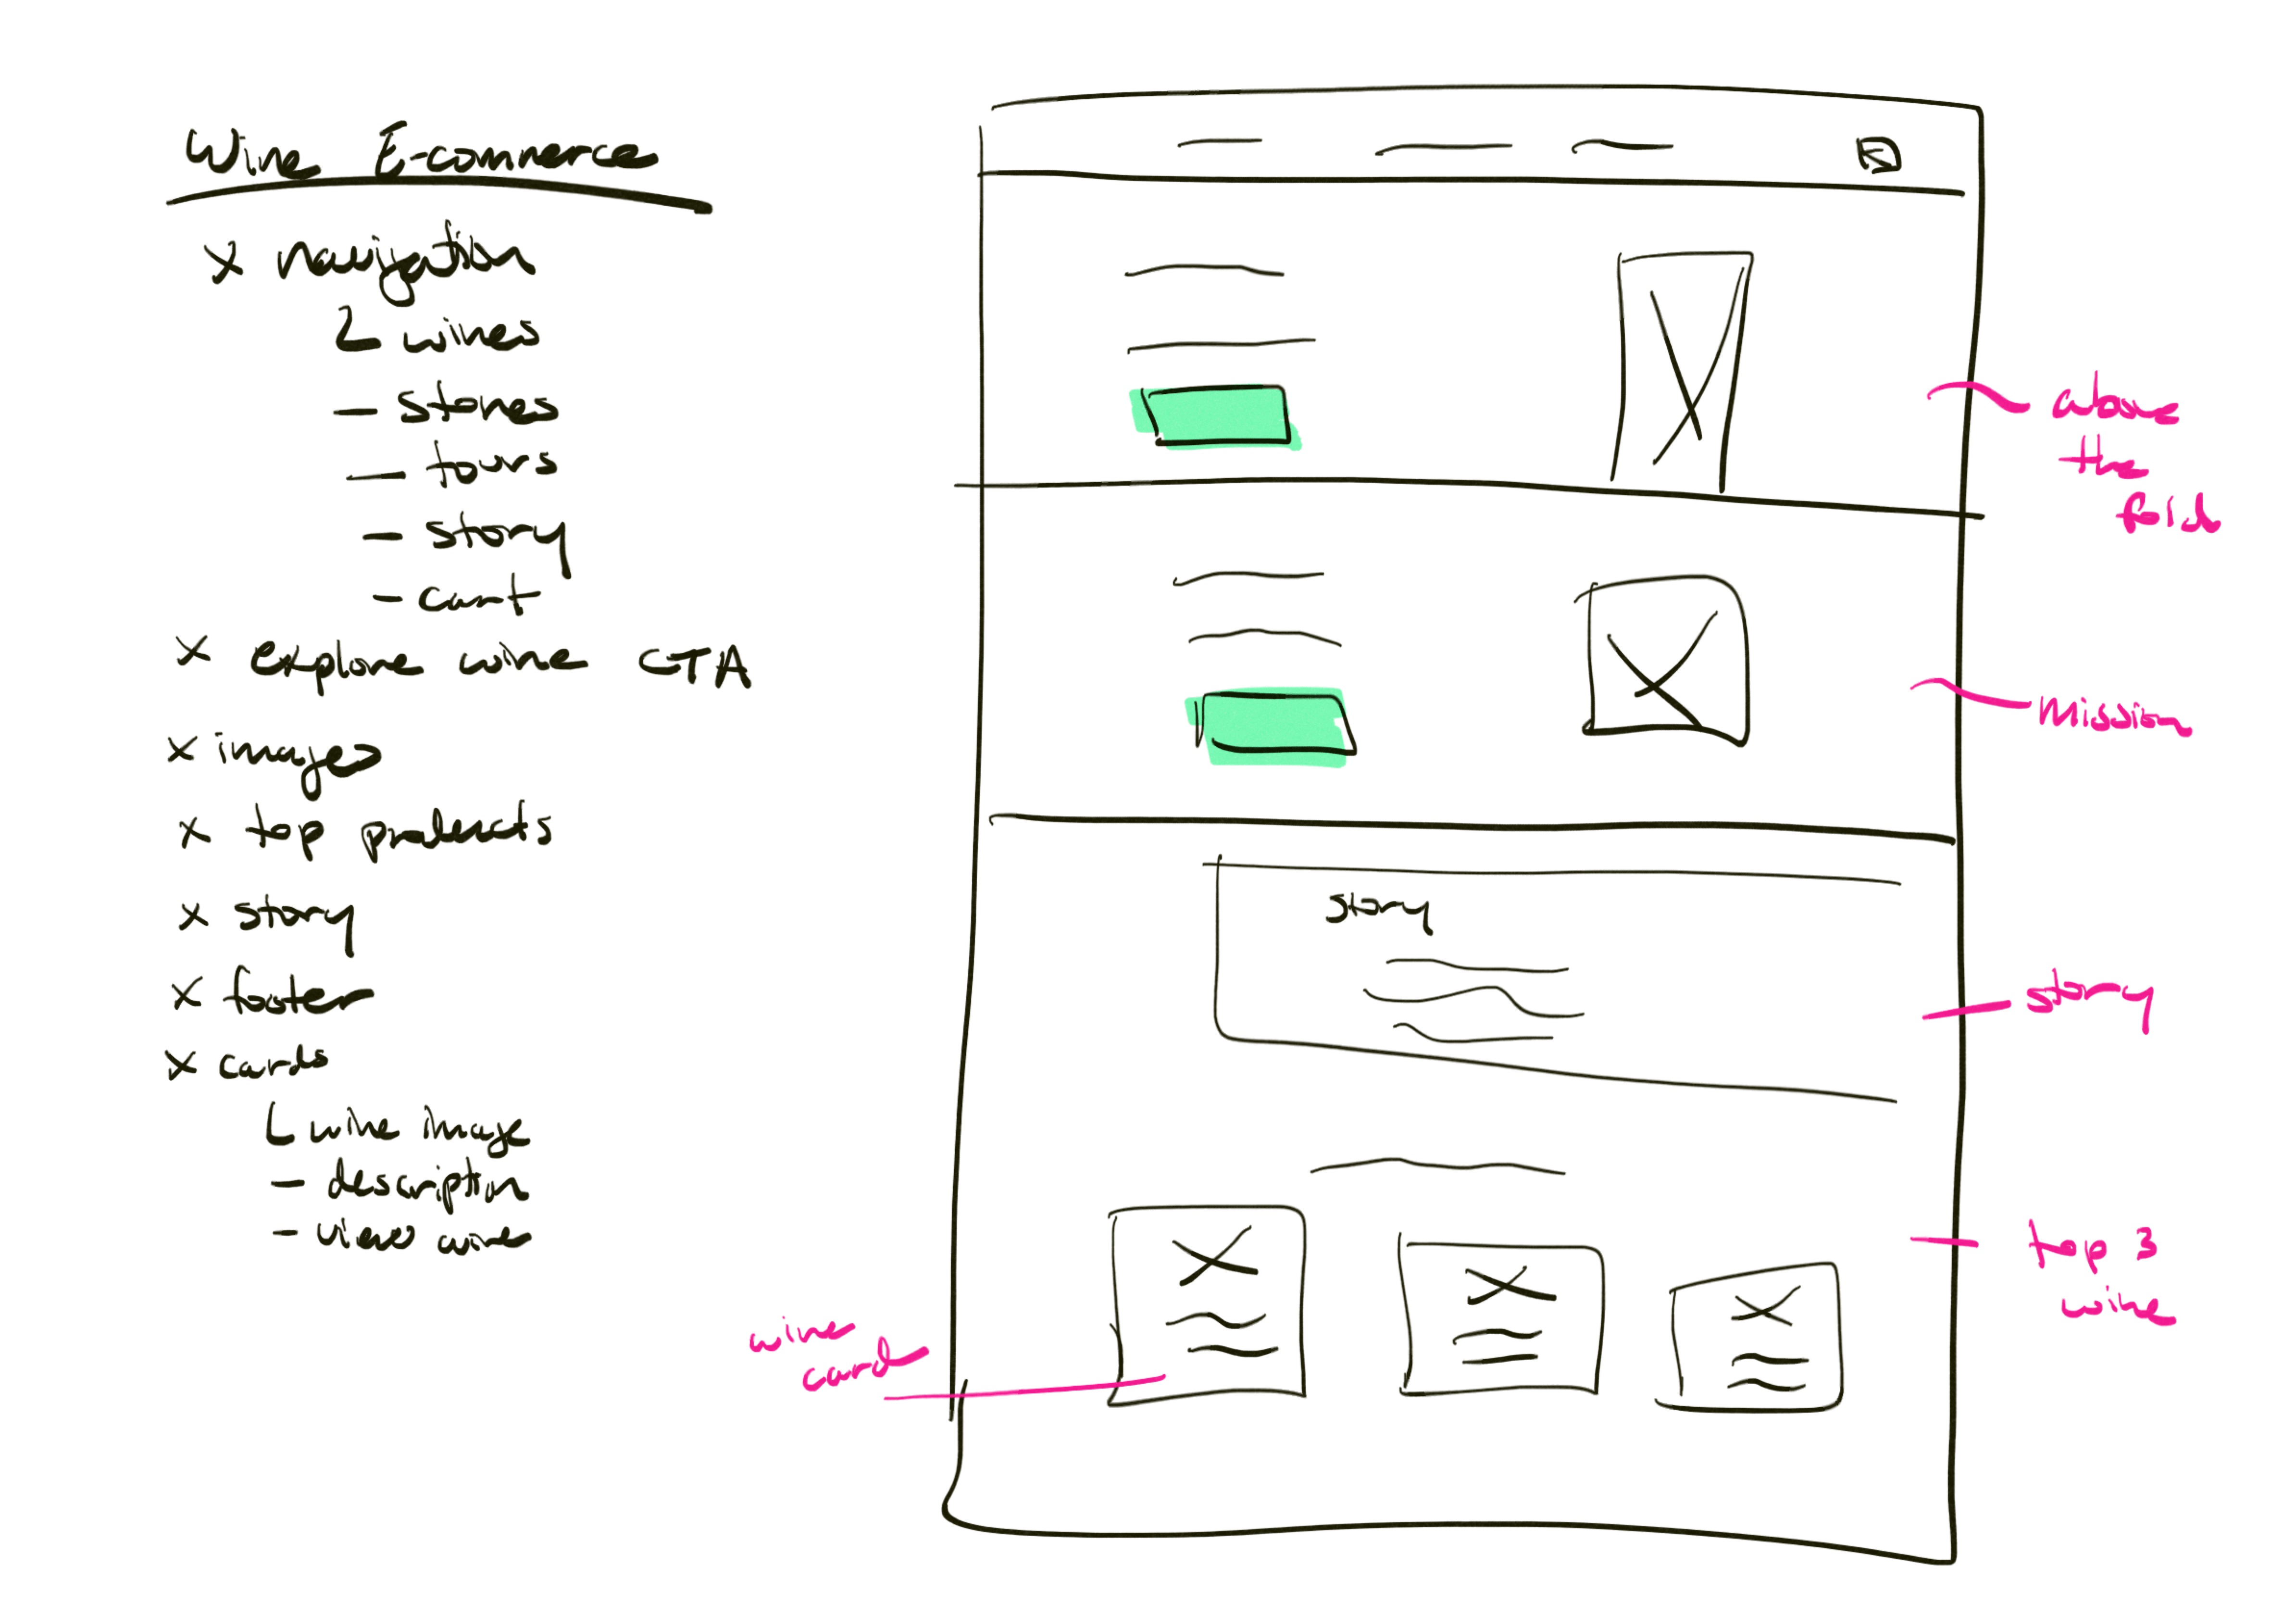 Wine E-commerce
x navigation
wines
- stores
- tours
- story
- cart
x explore wine CTA
x images
x top products
x story
x footer
x cards
wine image
- description
- view wine
above
the
fold
Mission
story
story
top 3
wine
wine
card